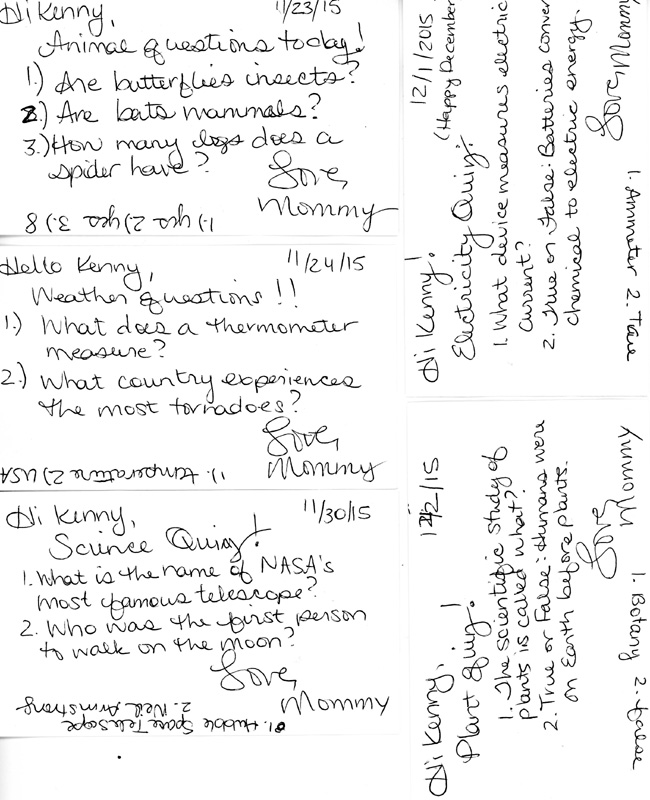 Hi Kenny, 11/23/15
Animal questions today!
1.) Are butterflies insects?
2.) Are bats mammals?
3.) How many legs does a
spider have?
Love,
Mommy
1.) yes 2) yes 3.) 8
Hello Kenny, 11/24/15
Weather questions!!
1.) What does a thermometer
measure?
2.) What country experiences
the most tornadoes?
Love,
Mommy
1). temperature 2) USA
Hi Kenny, 11/30/15
Science Quiz!
1. What is the name of NASA's
most famous telescope?
2. Who was the first person
to walk on the moon?
Love,
Mommy
1. Hubble Space Telescope
2. Neil Armstrong
12/1/2015
(Happy December
Hi Kenny!
Electricity Quiz:
1. What device measures electric
current?
2. True or False: Batteries conver
chemical to electric energy.
Love, Mommy
1. Ammeter 2. True
12/2/15
Hi Kenny,
Plant Quiz!
1. The scientific study of
plants is called what?
2. True or False: Humans were
on Earth before plants.
Love
Mommy
1. Botany 2. false